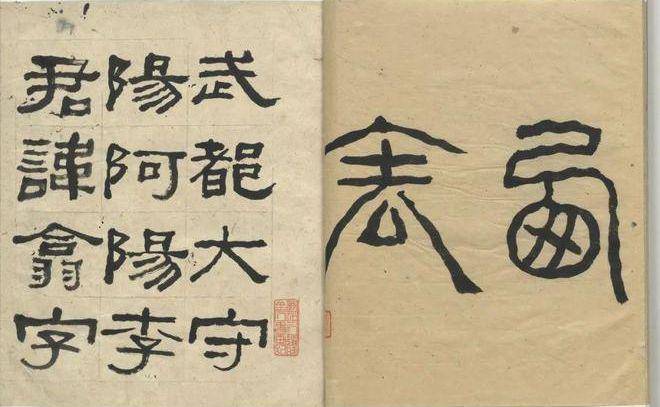 西表
武都大守
陽阿陽李
君諱翕字